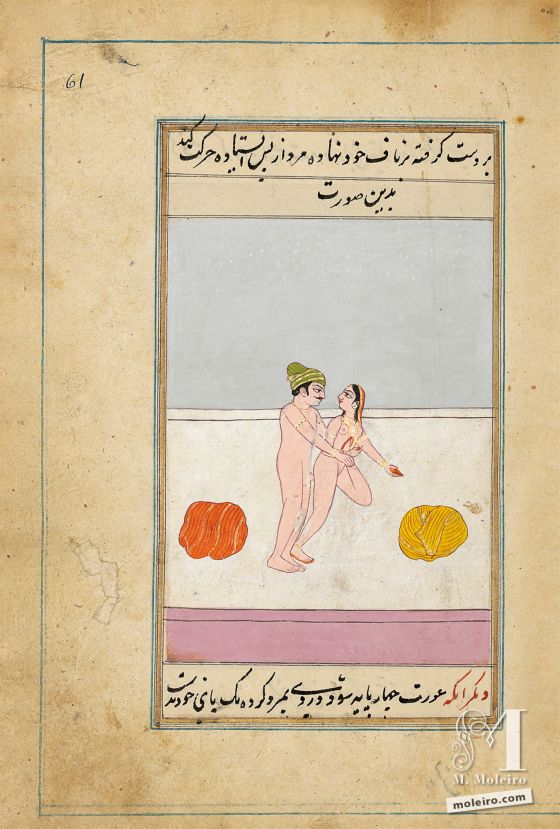 61
بر دست گرفته بر ناف خود نهاده مرد از پس ایستاده حرکت کند
بدین صورت
دیگر آنکه عورت چهار پایه شود و روی بمرد کرده یک پای خود بدست
M
M. Moleiro
moleiro.com